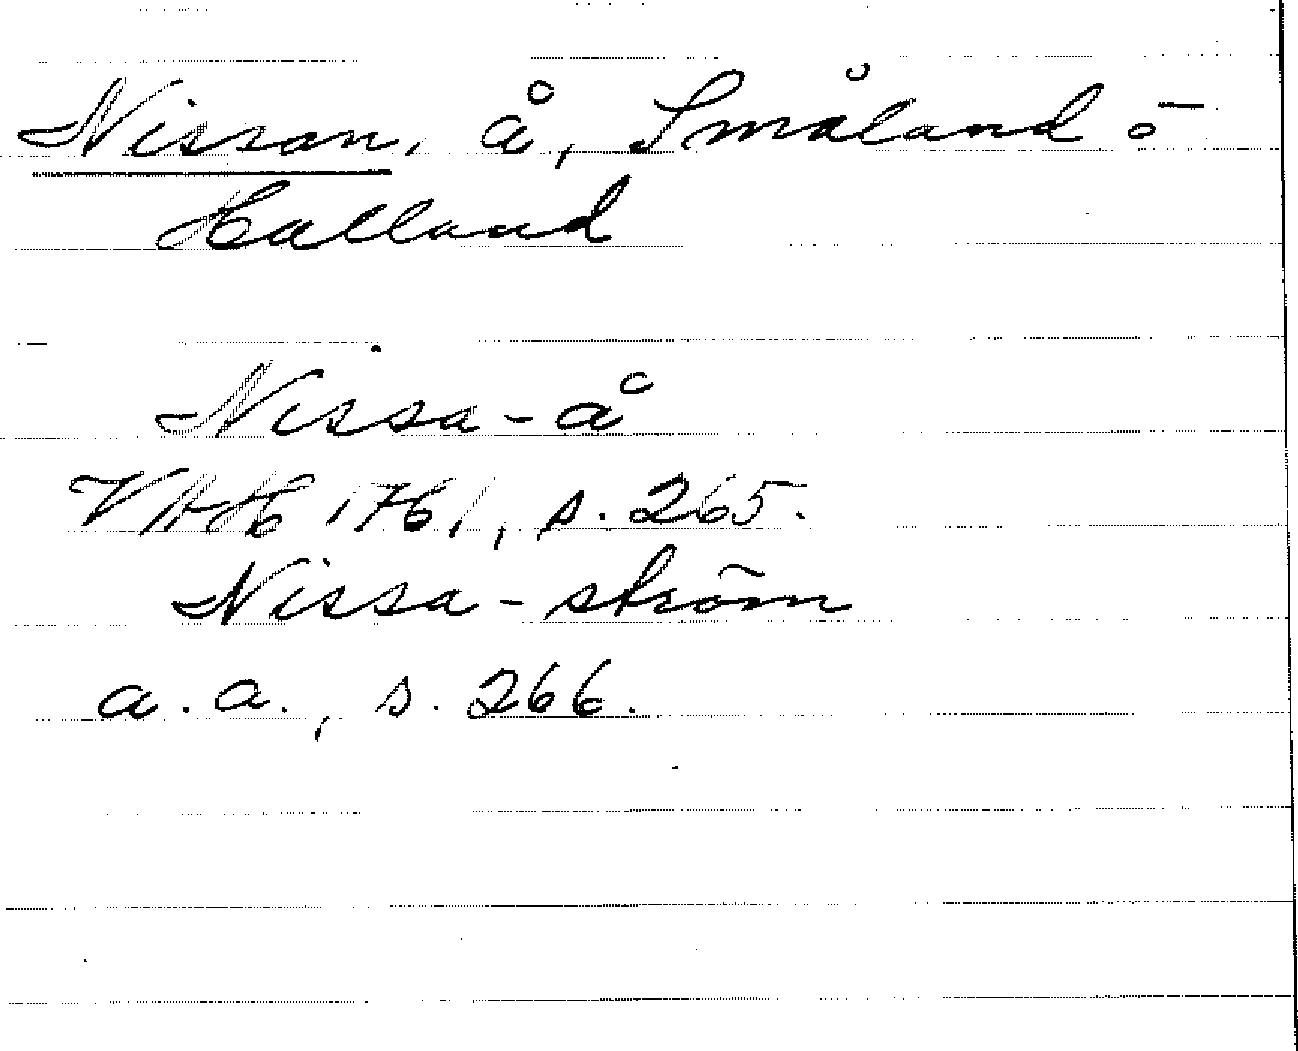 Nissan, å, Småland o
Halland
Nissa-å
VAH 1761, s. 265.
Nissa-ström
a.a., s. 266.